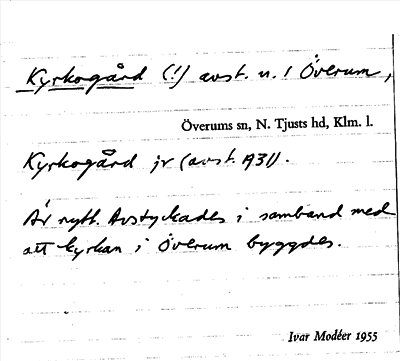 Kyrkogård (!) avst. u. 1 Överum,
Överums sn, N. Tjusts hd, Klm. l.
Kyrkogård jr (avst. A31).
Är nytt. Avstyckades i samband med
att kyrkan i Överum byggdes.
Ivar Modéer 1955